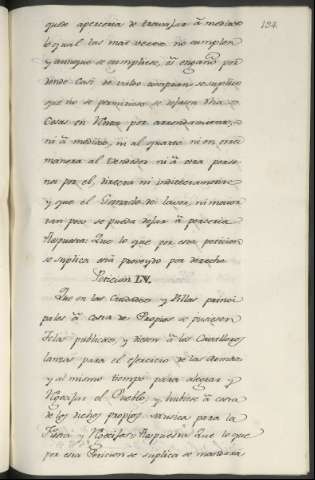 124.
que de aperceria de travajar á medias
lo qual las mas veces no cumplen
y aunque se cumpliese, es engaño por
donde Casi de valde compran: se suplico
que no se permitiese se dejasen dhas
Cosas en Venta por arrendamiento,
ni á medias, ni al quarto ni en otra
manera al Vendedor ni á otra perso-
na por el, directa ni indirectamente
y que el Ganado de labor, ni menor
tan poco se pueda dejar á perceria
Respuesta: Que lo que por esta peticion
se suplica está proveydo por derecho
Peticion LV.
Que en las Ciudades y Villas princi-
pales á costa de Propios se pusiesen
Telas publicas, y diesen á los Cavalleros
lanzas para el egercicio de las Armas
y al mismo tiempo para alegrar y
Regocijar el Pueblo, y hubiese á costa
de los dichos propios Musica para la
Fiesta y Regocijos: Respuesta Que lo que
por esta Peticion se suplica se mandará